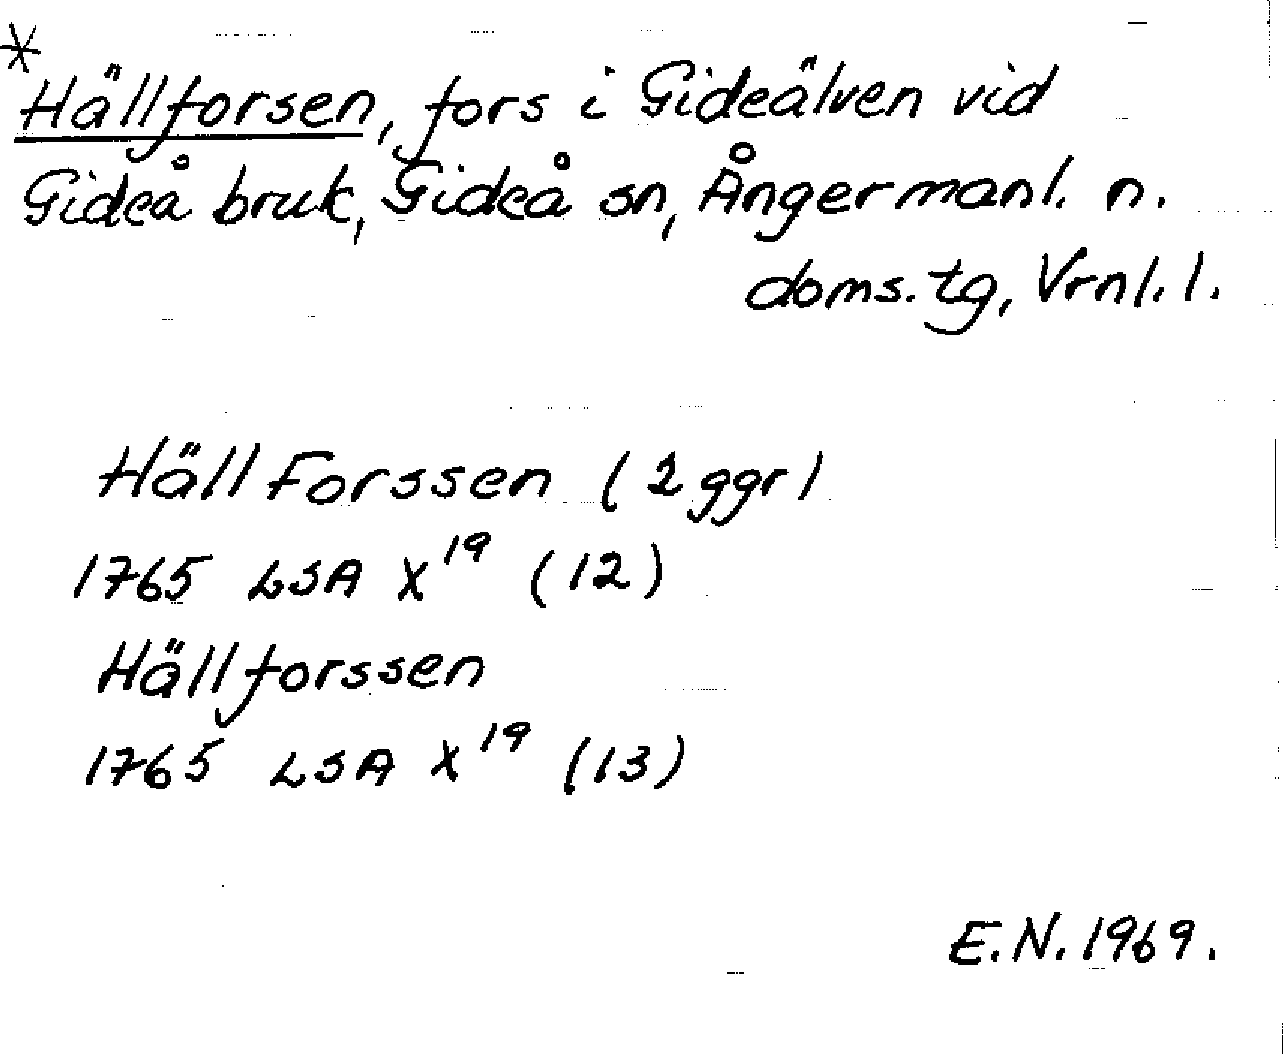 *
Hällforsen, fors i Gideälven vid
Gideå bruk, Gideå sn, Ångermanl. n.
doms.tg, Vrnl. l.
Häll Forssen (2 ggr)
1765 LSA X¹⁹ (12)
Hällforssen
1765 LSA X¹⁹ (13)
E.N. 1969.